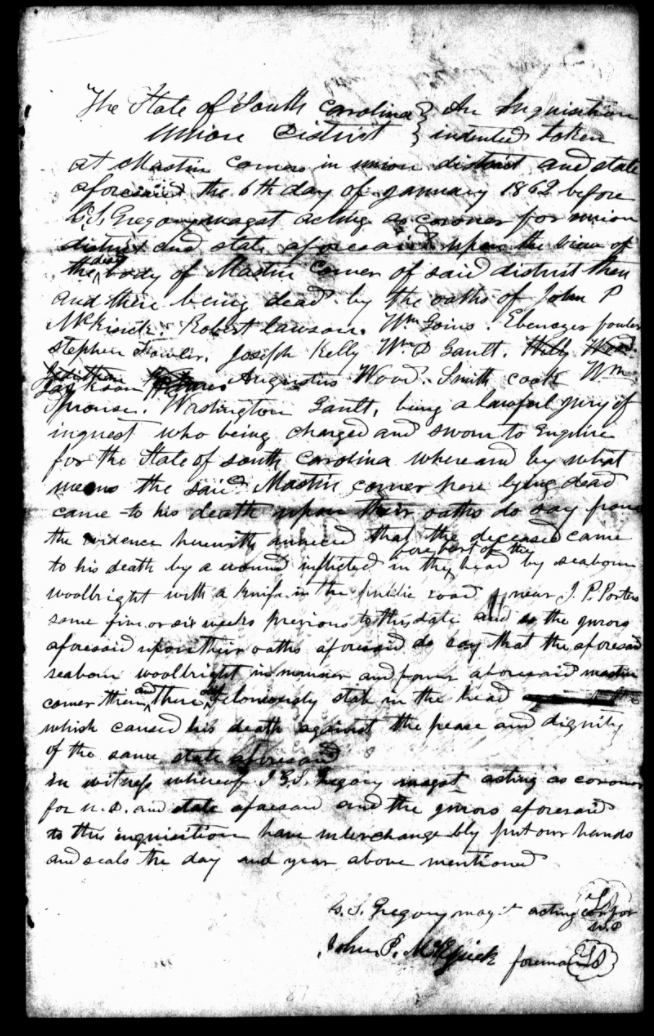 The State of South Carolina } An Inquisition
Union District } indented taken
at Mastin Comers in union district and state
aforesaid the 6th day of January 1862 before
G. S. Gregory magst acting as coroner for union
district and state aforesaid upon the view of
the dead body of Mastin Comer of said district then
and there being dead by the oaths of John P
McKisick. Robert Lawson. Wm Goins. Ebenezer fowler
Stephen Fowler. Joseph Kelly Wm D Gault.
Augustus Wood. Smith cook Wm
Sprouse. Washington Gault, being a lawful jury of
inquest who being charged and sworn to Enquire
for the State of south Carolina where and by what
means the said Mastin comer here lying dead
came to his death upon their oaths do say from
the evidence herewith annexed that the deceased came
to his death by a wound inflicted in the fore part of the head by seabourn
woolbright with a knife in the public road near J. P. Porters
some five or six weeks previous to this date and so the jurors
aforesaid upon their oaths aforesaid do say that the aforesaid
seaborn woolbright in manner and form aforesaid mastin
comer then and there feloniously stab in the head
which caused his death against the peace and dignity
of the same state aforesaid
in witness whereof I G. S. Gregory magst acting as coroner
for U. D. and state aforesaid and the jurors aforesaid
to this inquisition have interchangeably put our hands
and seals the day and year above mentioned
G. S. Gregory magst acting Cor for
U.D
John P. McKisick foreman LS